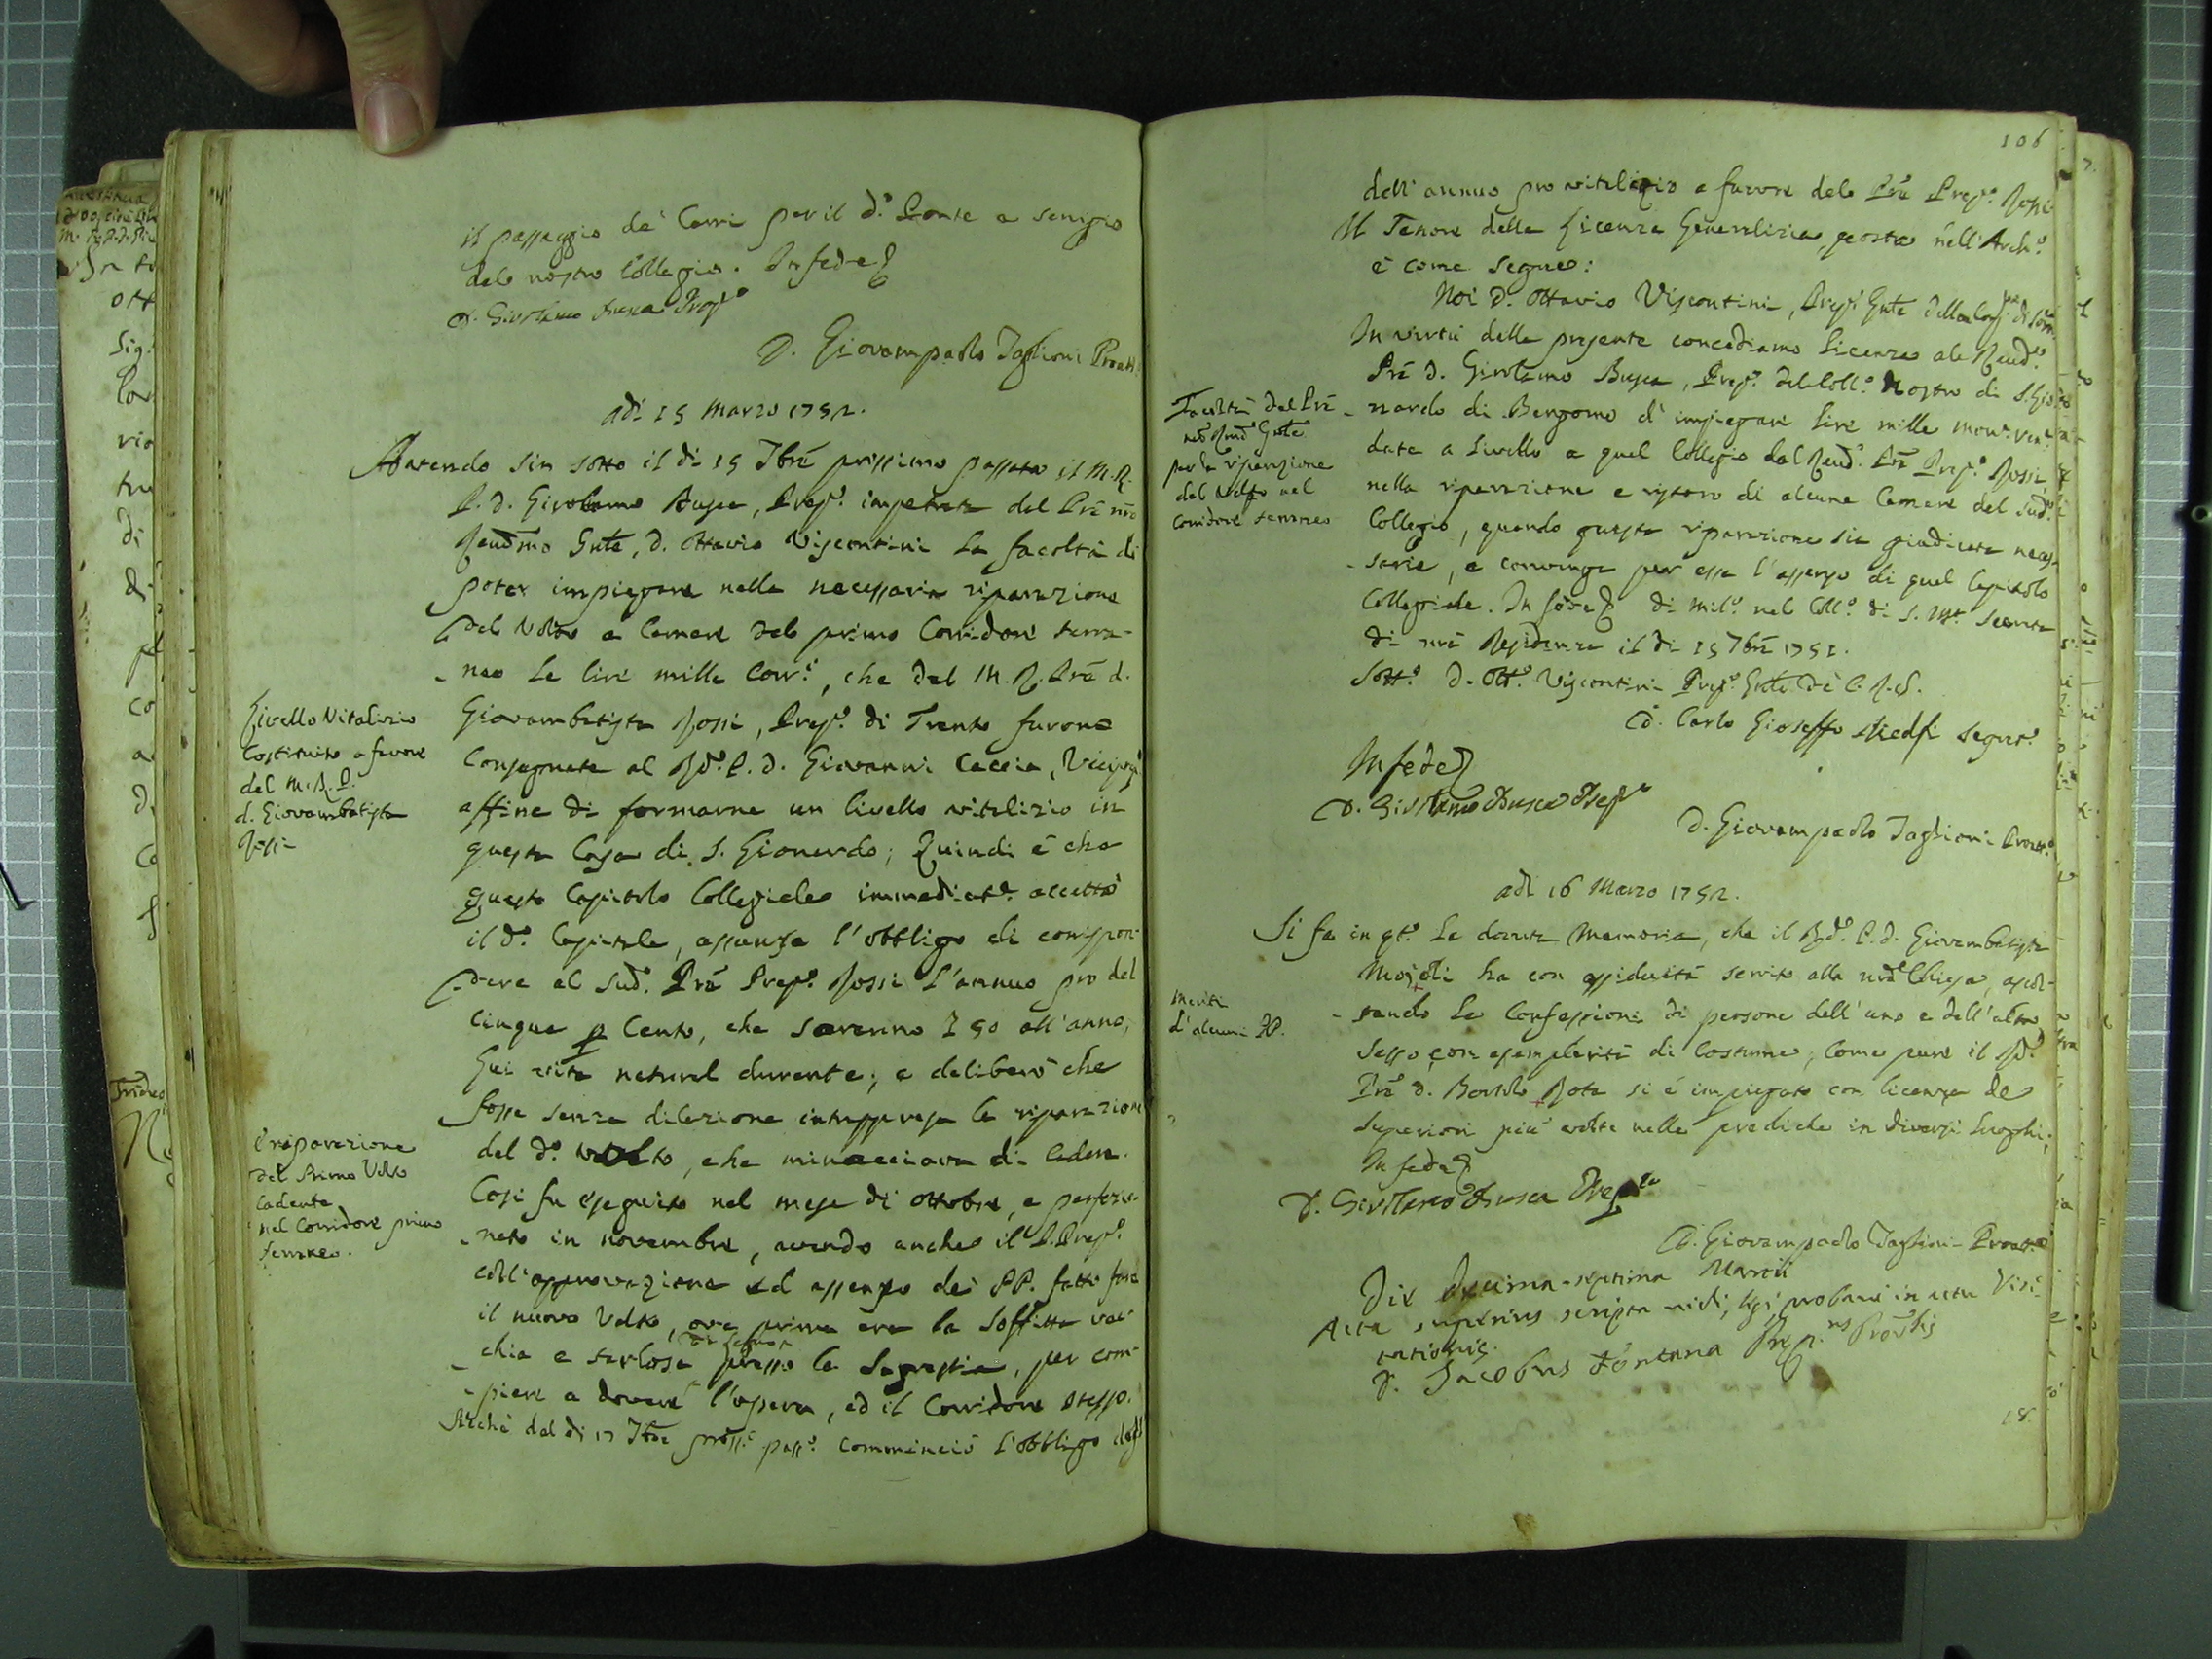 il passaggio de' Carri per il d.o Ponte a servigio
del nostro Collegio. In fede
D. Girolamo Busca Prep.o
D. Giovampaolo Taglioni Proatt.
adi 15 Marzo 1752.
Avendo sin sotto il di 15 7bre prossimo passato il M. R.
P. D. Girolamo Busca, Prep.o impetrata dal Prē nrō
Reudmo Gnłe, D. Ottavio Viscontini la facoltà di
poter impiegare nella necessaria riparazione
del Volto e Camere del primo Corridore terra-
neo le lire mille Corr.i, che dal M. R. Prē d.
Livello Vitalizio
costituito a favore
del M. R. P.
d. Giovambatista
Rossi
Giovambatista Rossi, Prep.o di Trento furono
Consegnate al Rd.o P. d. Giovanni Caccia, Viceprep.
affine di formarne un livello vitalizio in
questa Casa di S. Gionardo; Quindi è che
questo Capitolo Collegiale immediat.e accettò
il d.o Capitale, assunse l'obbligo di corrispon-
dere al Sud.o Prē Prep.o Rossi l'annuo pro del
cinque p Cento, che saranno L 50 all'anno,
Lui vita natural durante; e deliberò che
fosse senza dilazione intrapresa la riparazione
del d.o Volto, che minacciava di cadere.
La riparazione
del Primo Volto
cadente
nel Corridore primo
terraneo.
Così fu eseguito nel mese di ottobre, e perfezio-
nato in novembre, avendo anche il P. Prep.o
coll'approvazione ed assenso dei PP. fatto fare
il nuovo Volto, ove prima era la Soffitta vec-
chia e tarlosa presso la Sagrestia, per com-
piere a dovere l'opera, ed il Corridore stesso.
Sicchè dal di 17 7bre pross.o pass.o cominciò l'obbligo
106
dell'annuo pro vitalizio a favore del Prē Prep.o Rossi
Il Tenore della Licenza Generalizia, posta nell'Arch.o
è come segue:
Noi D. Ottavio Visconti, Prep.o Gnłe della Cong.ne di Som.
In virtù della presente concediamo licenza al Reud.o
Prē D. Girolamo Busca, Prep.o del Coll.o Nostro di S. Gio-
Facoltà del Prē
nrō Rmō Gnłe
per la riparazione
del Volto nel
corridore terraneo
nardo di Bergomo d'impiegare lire mille mon.
date a livello a quel Collegio dal Reud.o Prē Prep.o Rossi
nella riparazione e ristoro di alcune Camere del sud.o
Collegio, quando questa riparazione sia giudicata neces-
saria, e convenga per essa l'assenso di quel Capitolo
Collegiale. In fede di Mil.o nel Coll.o di S. Ma. Secreta
di nrā Residenza il di 15 7bre 1751.
Sott.o D. Ott.o Visconti Prep.o Gnłe de' C. R. S.
D. Carlo Gioseffo Segret.o
In fede
D. Girolamo Busca Prep.o
D. Giovampaolo Taglioni Proatt.o
adi 16 Marzo 1752.
Si fa in qt.o la dovuta Memoria, che il Rd.o P. d. Giovambatista
Mojoli ha con assiduità servito alla nrā Chiesa, ascol-
Meriti
d'alcuni PP.
tando le Confessioni di persone dell'uno e dell'altro
Sesso, con esemplarità di Costume, Come pure il Rd.
Prē D. Bortolo Rota si è impiegato con licenza de
Superiori più volte nelle prediche in diversi luoghi;
In fede
D. Girolamo Busca Prep.to
D. Giovampaolo Taglioni Proatt.o
Die Decima-septima Martii
Acta superius scripta vidi, legi, probavi in actu Visi-
tationis.
D. Jacobus Fontana Prep.us Provlis
18.